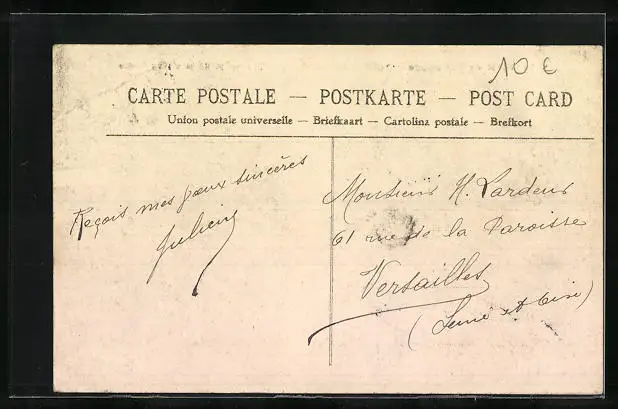 10 €
CARTE POSTALE — POSTKARTE — POST CARD
Union postale universelle — Briefkaart — Cartolina postale — Brefkort
Reçois mes vœux sincères
Julien
Monsieur H. Lardeur
61 rue de la Paroisse
Versailles
(Seine et Oise)